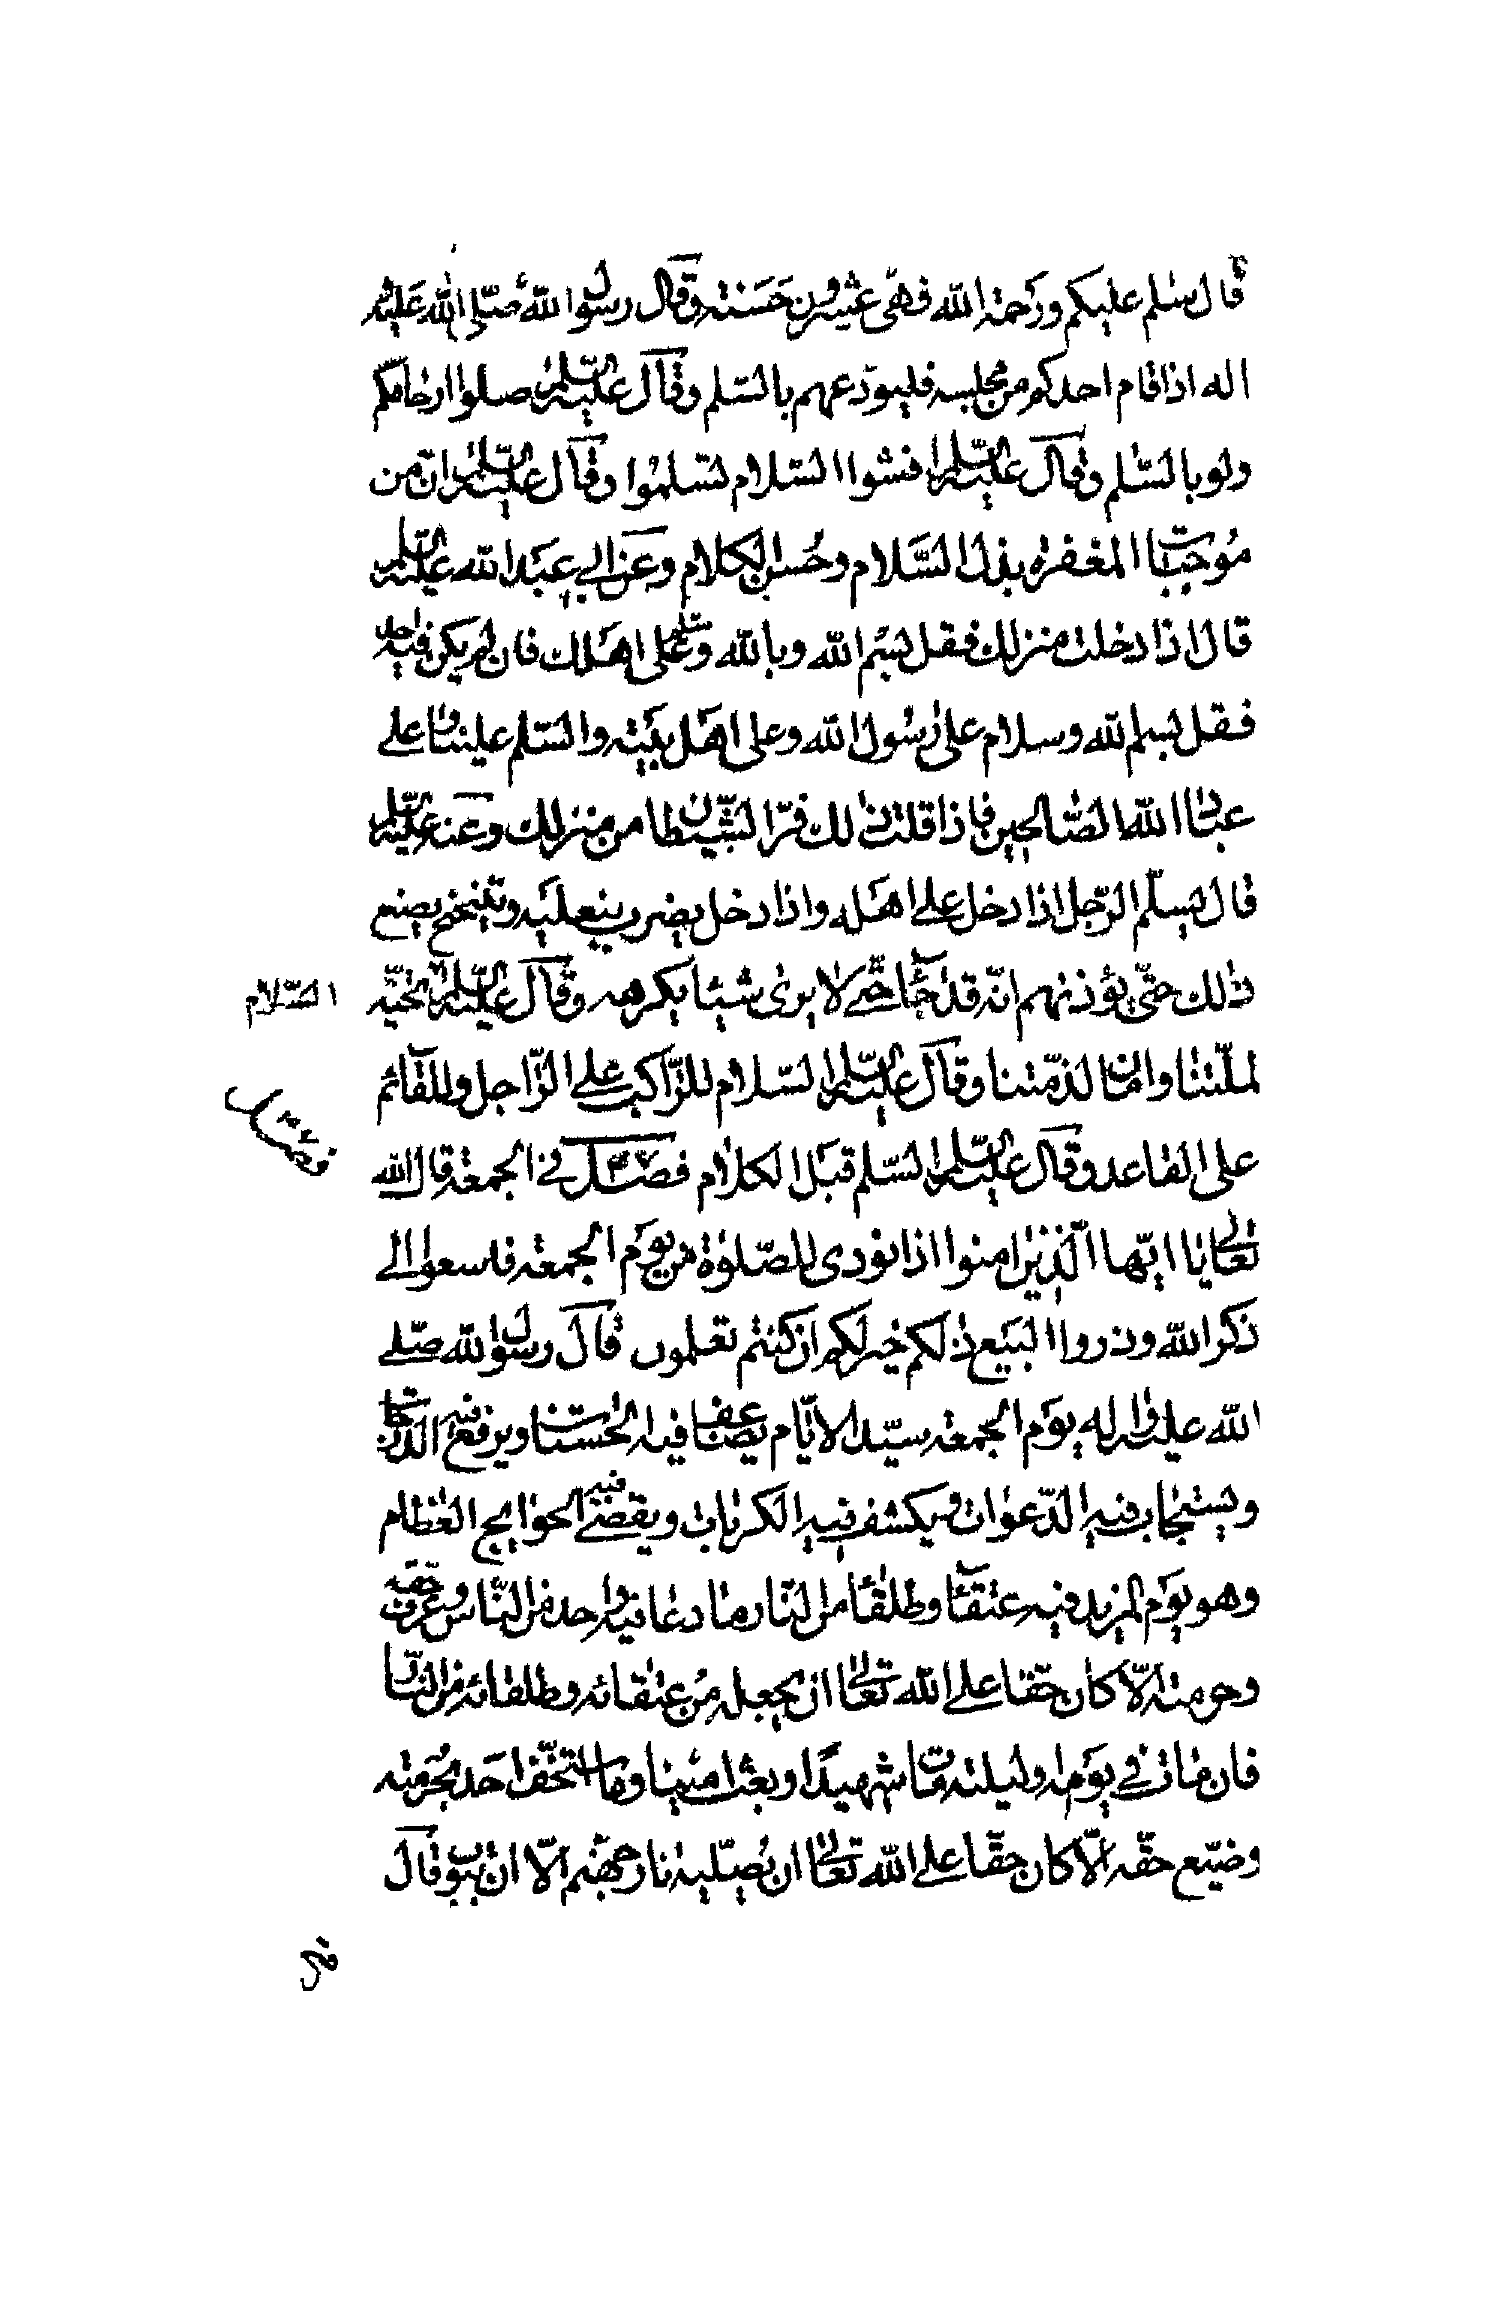 قال سلم عليكم ورحمة الله فهى عشرون حسنة وقال رسول الله صلى الله عليه و
اله اذا قام احدكم من مجلسه فليودعهم بالسلم وقال عليه السلم صلوا ارحامكم
ولو بالسلم وقال عليه السلم افشوا السلام تسلموا وقال عليه السلم ان من
موجبات المغفرة بذل السلام وحسن الكلام وعن ابي عبد الله عليه السلم
قال اذا دخلت منزلك فقل بسم الله وبالله وسلم على اهلك فان لم يكن فيه احد
فقل بسم الله وسلام على رسول الله وعلى اهل بيته والسلم علينا وعلى
عباد الله الصالحين فاذا قلت ذلك فر الشيطان من منزلك وعنه عليه السلم
قال يسلم الرجل اذا دخل على اهله واذا دخل يضرب بنعليه ويتنحنح يصنع
ذلك حتى يؤذنهم انه قد جاء حتى لا يرى شيئا يكرهه وقال عليه السلم تحية
السلام
لملتنا وامان لذمتنا وقال عليه السلم السلام للراكب على الراجل وللقائم
على القاعد وقال عليه السلم السلم قبل الكلام فصل في الجمعة قال الله
تعالى يا ايها الذين امنوا اذا نودى للصلوة من يوم الجمعة فاسعوا الى
ذكر الله وذروا البيع ذلكم خير لكم ان كنتم تعلمون قال رسول الله صلى
الله عليه واله يوم الجمعة سيد الايام يضاعف فيه الحسنات ويرفع فيه الدرجات
ويستجاب فيه الدعوات ويكشف فيه الكربات ويقضى فيه الحوايج العظام
وهو يوم المزيد فيه عتقاء وطلقاء من النار ما دعا فيه واحد من الناس وعرف حقه
وحرمته الا كان حقا على الله تعالى ان يجعله من عتقائه وطلقائه من النار
فان مات في يومه وليلته مات شهيدا وبعث امينا وما استخف احد بحرمته
وضيع حقه الا كان حقا على الله تعالى ان يصليه نار جهنم الا ان يتوب وقال